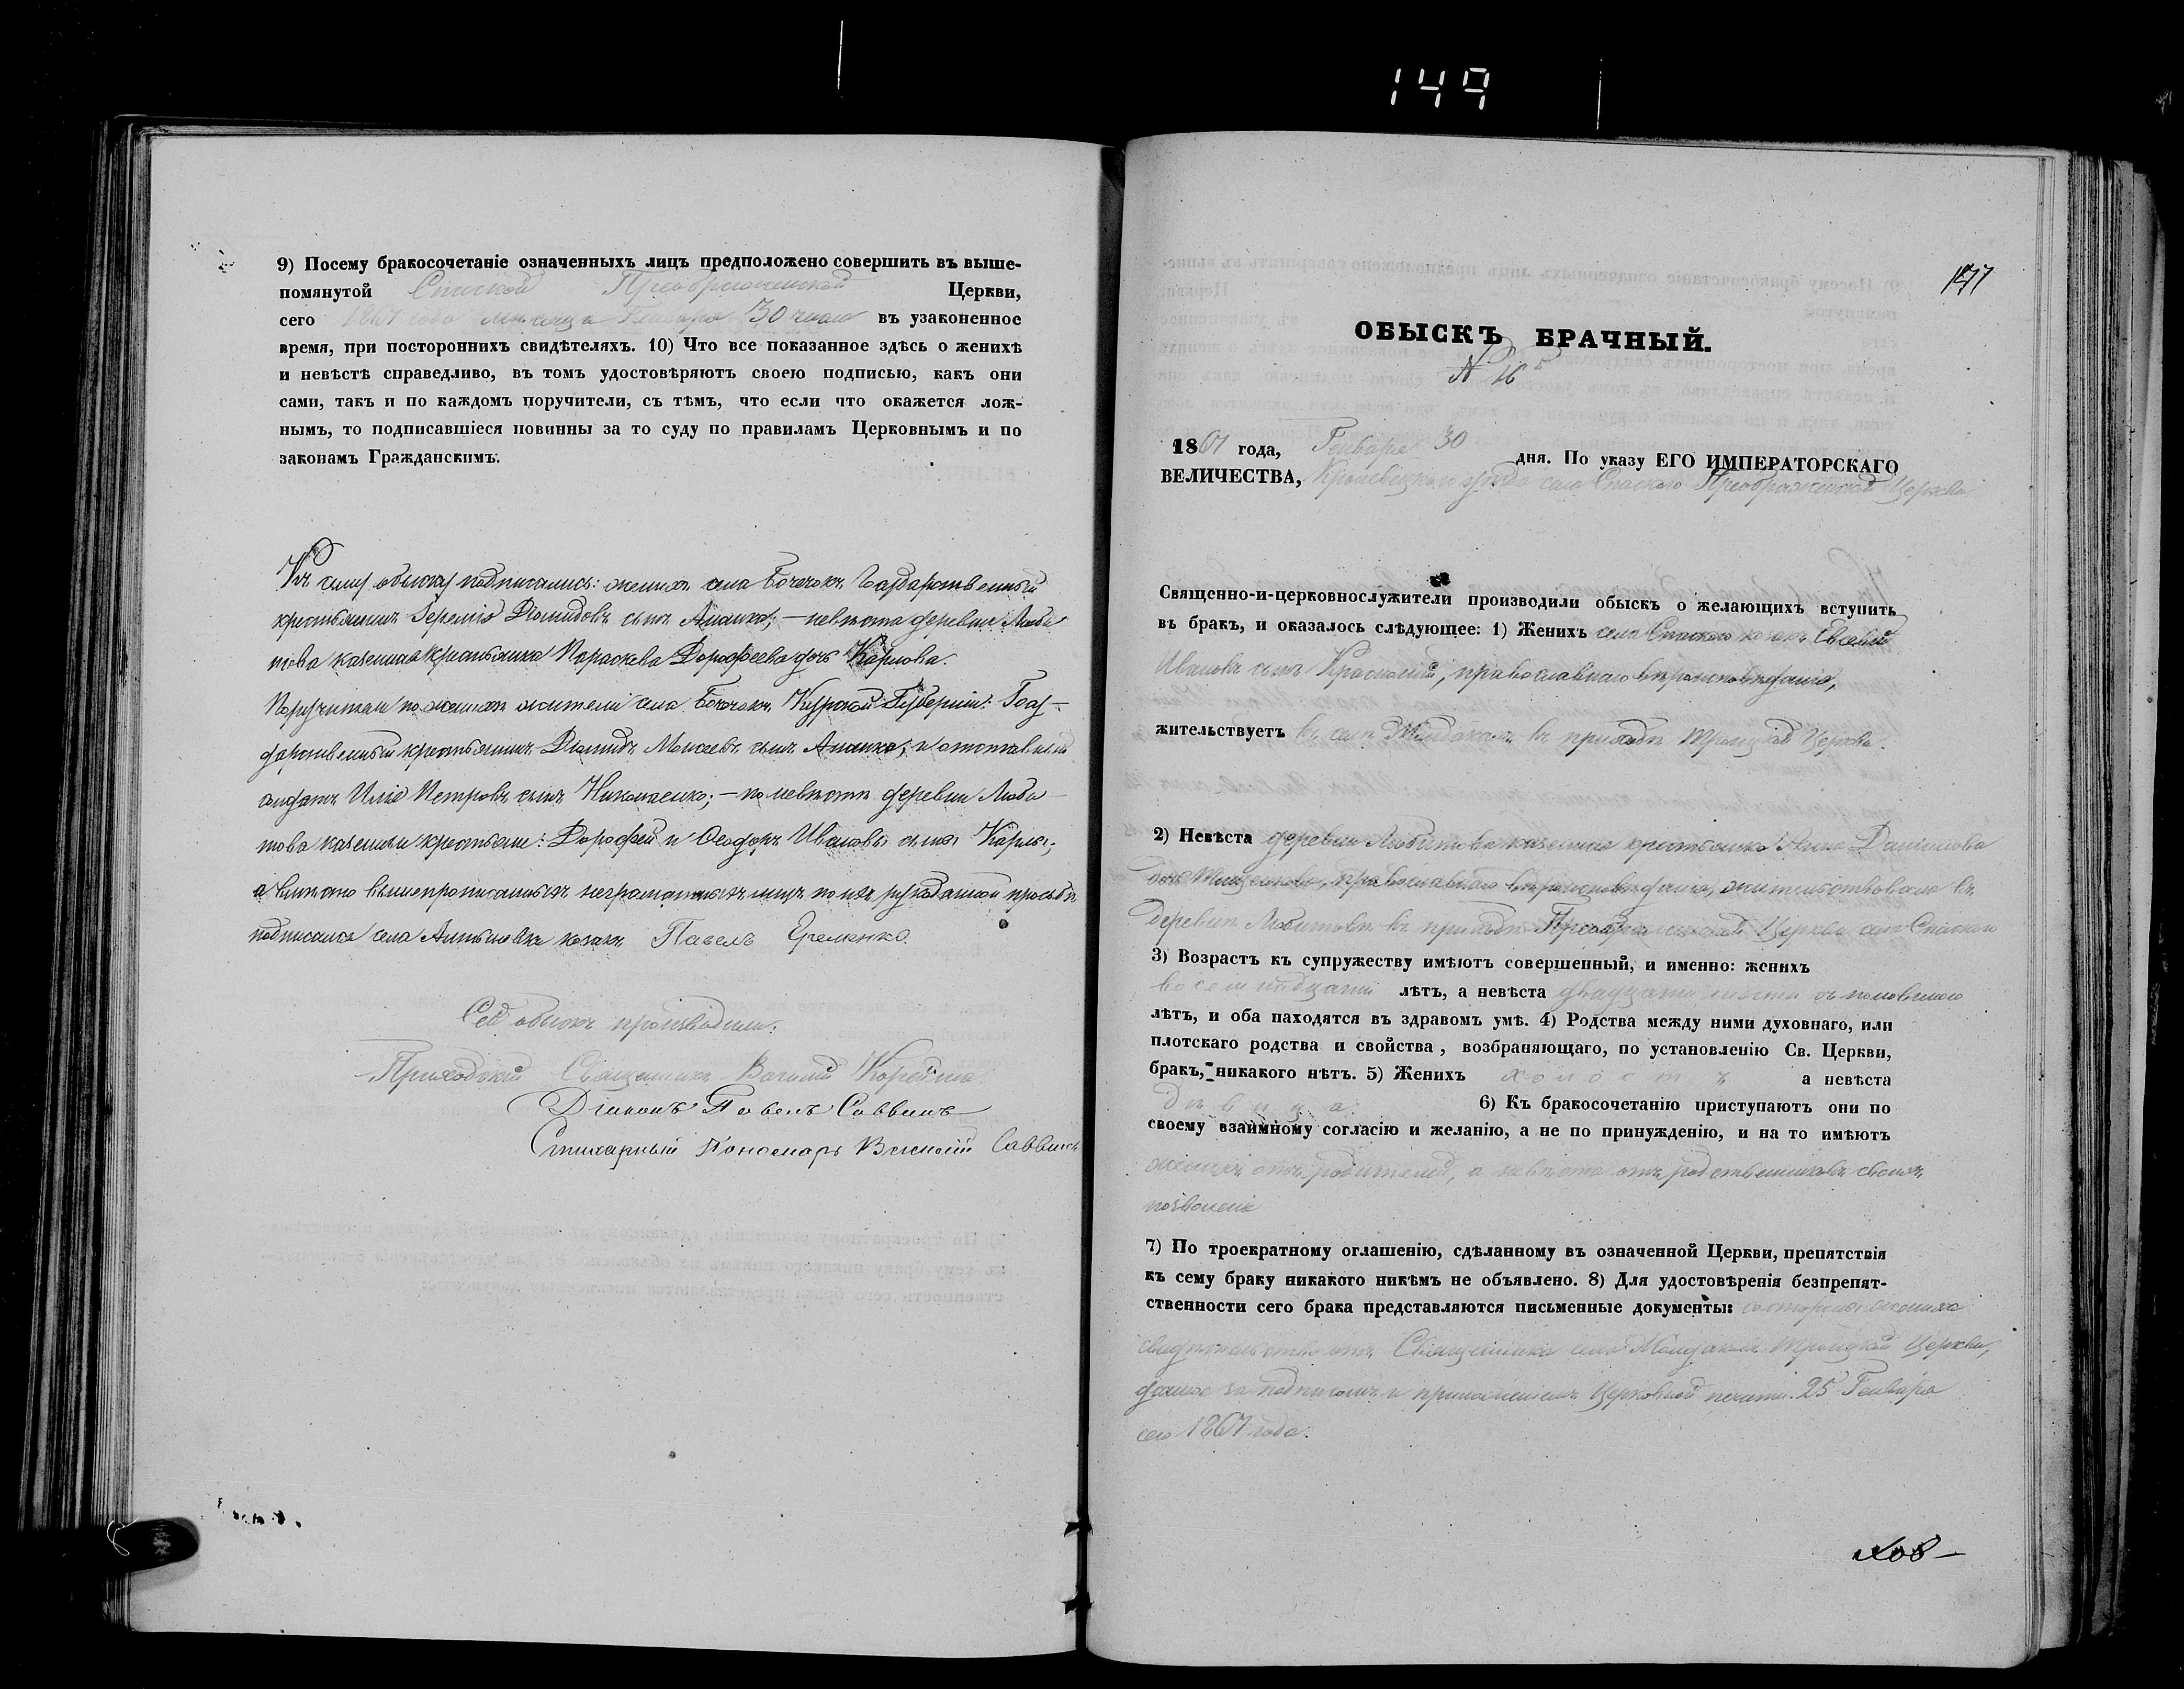 149
9) Посему бракосочетаніе означенныхъ лицъ предположено совершить въ выше-
помянутой Спаской Преображенской Церкви,
сего 1861 года месяца Генваря 30 числа въ узаконенное
время, при постороннихъ свидѣтеляхъ. 10) Что все показанное здѣсь о женихѣ
и невѣстѣ справедливо, въ томъ удостовѣряютъ своею подписью, какъ они
сами, такъ и по каждомъ поручители, съ тѣмъ, что если что окажется лож-
нымъ, то подписавшіеся повинны за то суду по правиламъ Церковнымъ и по
законамъ Гражданскимъ.
Къ сему обыску подписались: женихъ села Бочечокъ Государственный
крестьянинъ Іеремія Діомидовъ сынъ Ананко; — невѣста деревни Люби
това казенная крестьянка Параскева Дорофеева дочь Карпова.
Поручители по женихѣ жители села Бочечокъ Курской Губерніи: Госу-
дарственный крестьянинъ Діомидъ Моисеевъ сынъ Ананко, и отставный
солдатъ Илія Петровъ сынъ Николаенко; — по невѣстѣ деревни Люби
това казенные крестьяне: Дорофей и Феодоръ Ивановы сыны Карпы;
а вмѣсто вышепрописанныхъ неграмотныхъ лицъ по ихъ рукоданной прозьбѣ
подписался села козакъ Павелъ Еременко.
Сей обыскъ производили:
Приходскій Священникъ Василій
Діаконъ Павелъ Саввинъ
Стихарный Пономарь Василій Саввинъ
177
ОБЫСКЪ БРАЧНЫЙ.
N 16
1861 года, Генваря 30 дня. По указу ЕГО ИМПЕРАТОРСКАГО
ВЕЛИЧЕСТВА, Кролевецкаго уѣзда села Спаскаго Преображенской Церкви
Священно-и-церковнослужители производили обыскъ о желающихъ вступить
въ бракъ, и оказалось слѣдующее: 1) Женихъ села Спаского козакъ Евсевій
Ивановъ сынъ православнаго вѣроисповѣданія,
жительствуетъ въ селѣ въ приходѣ Троицкой Церкви.
2) Невѣста деревни Любитова казенная крестьянка Анна Даниилова
дочь православнаго вѣроисповѣданія, жительствовала въ
деревнѣ Любитовѣ въ приходѣ Преображенской Церкви села Спаского
3) Возрастъ къ супружеству имѣютъ совершенный, и именно: женихъ
восемнадцати лѣтъ, а невѣста двадцати шести съ половиною
лѣтъ, и оба находятся въ здравомъ умѣ. 4) Родства между ними духовнаго, или
плотскаго родства и свойства, возбраняющаго, по установленію Св. Церкви,
бракъ, никакого нѣтъ. 5) Женихъ холостъ а невѣста
дѣвица 6) Къ бракосочетанію приступаютъ они по
своему взаимному согласію и желанію, а не по принужденію, и на то имѣютъ
женихъ отъ родителей, а невѣста отъ родственниковъ своихъ
позволеніе
7) По троекратному оглашенію, сдѣланному въ означенной Церкви, препятствія
къ сему браку никакого никѣмъ не объявлено. 8) Для удостовѣренія безпрепят-
ственности сего брака представляются письменные документы: со стороны жениха
свидѣтельство отъ Священника села Троицкой Церкви,
данное за подписомъ и приложеніемъ Церковной печати 25 Генваря
сего 1861 года.